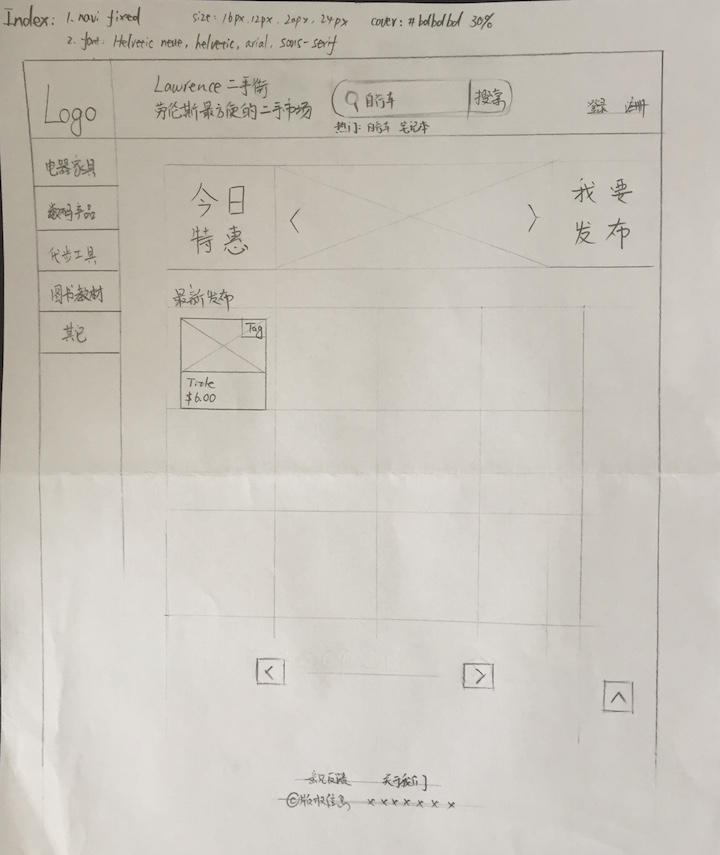 Index: 1. navi fixed size: 16px, 12px, 20px, 24px cover: #bdbdbd 30%
2. font: Helvetic neue, helvetic, arial, sans-serif
Logo
Lawrence 二手街
劳伦斯最方便的二手市场
自行车 搜索
热门: 自行车 笔记本
登录 注册
电器家具
数码产品
代步工具
图书教材
其它
今日特惠
<
>
我要发布
最新发布
Tag
Title
$6.00
<
>
^
意见反馈 关于我们
©版权信息 × × × × × × ×